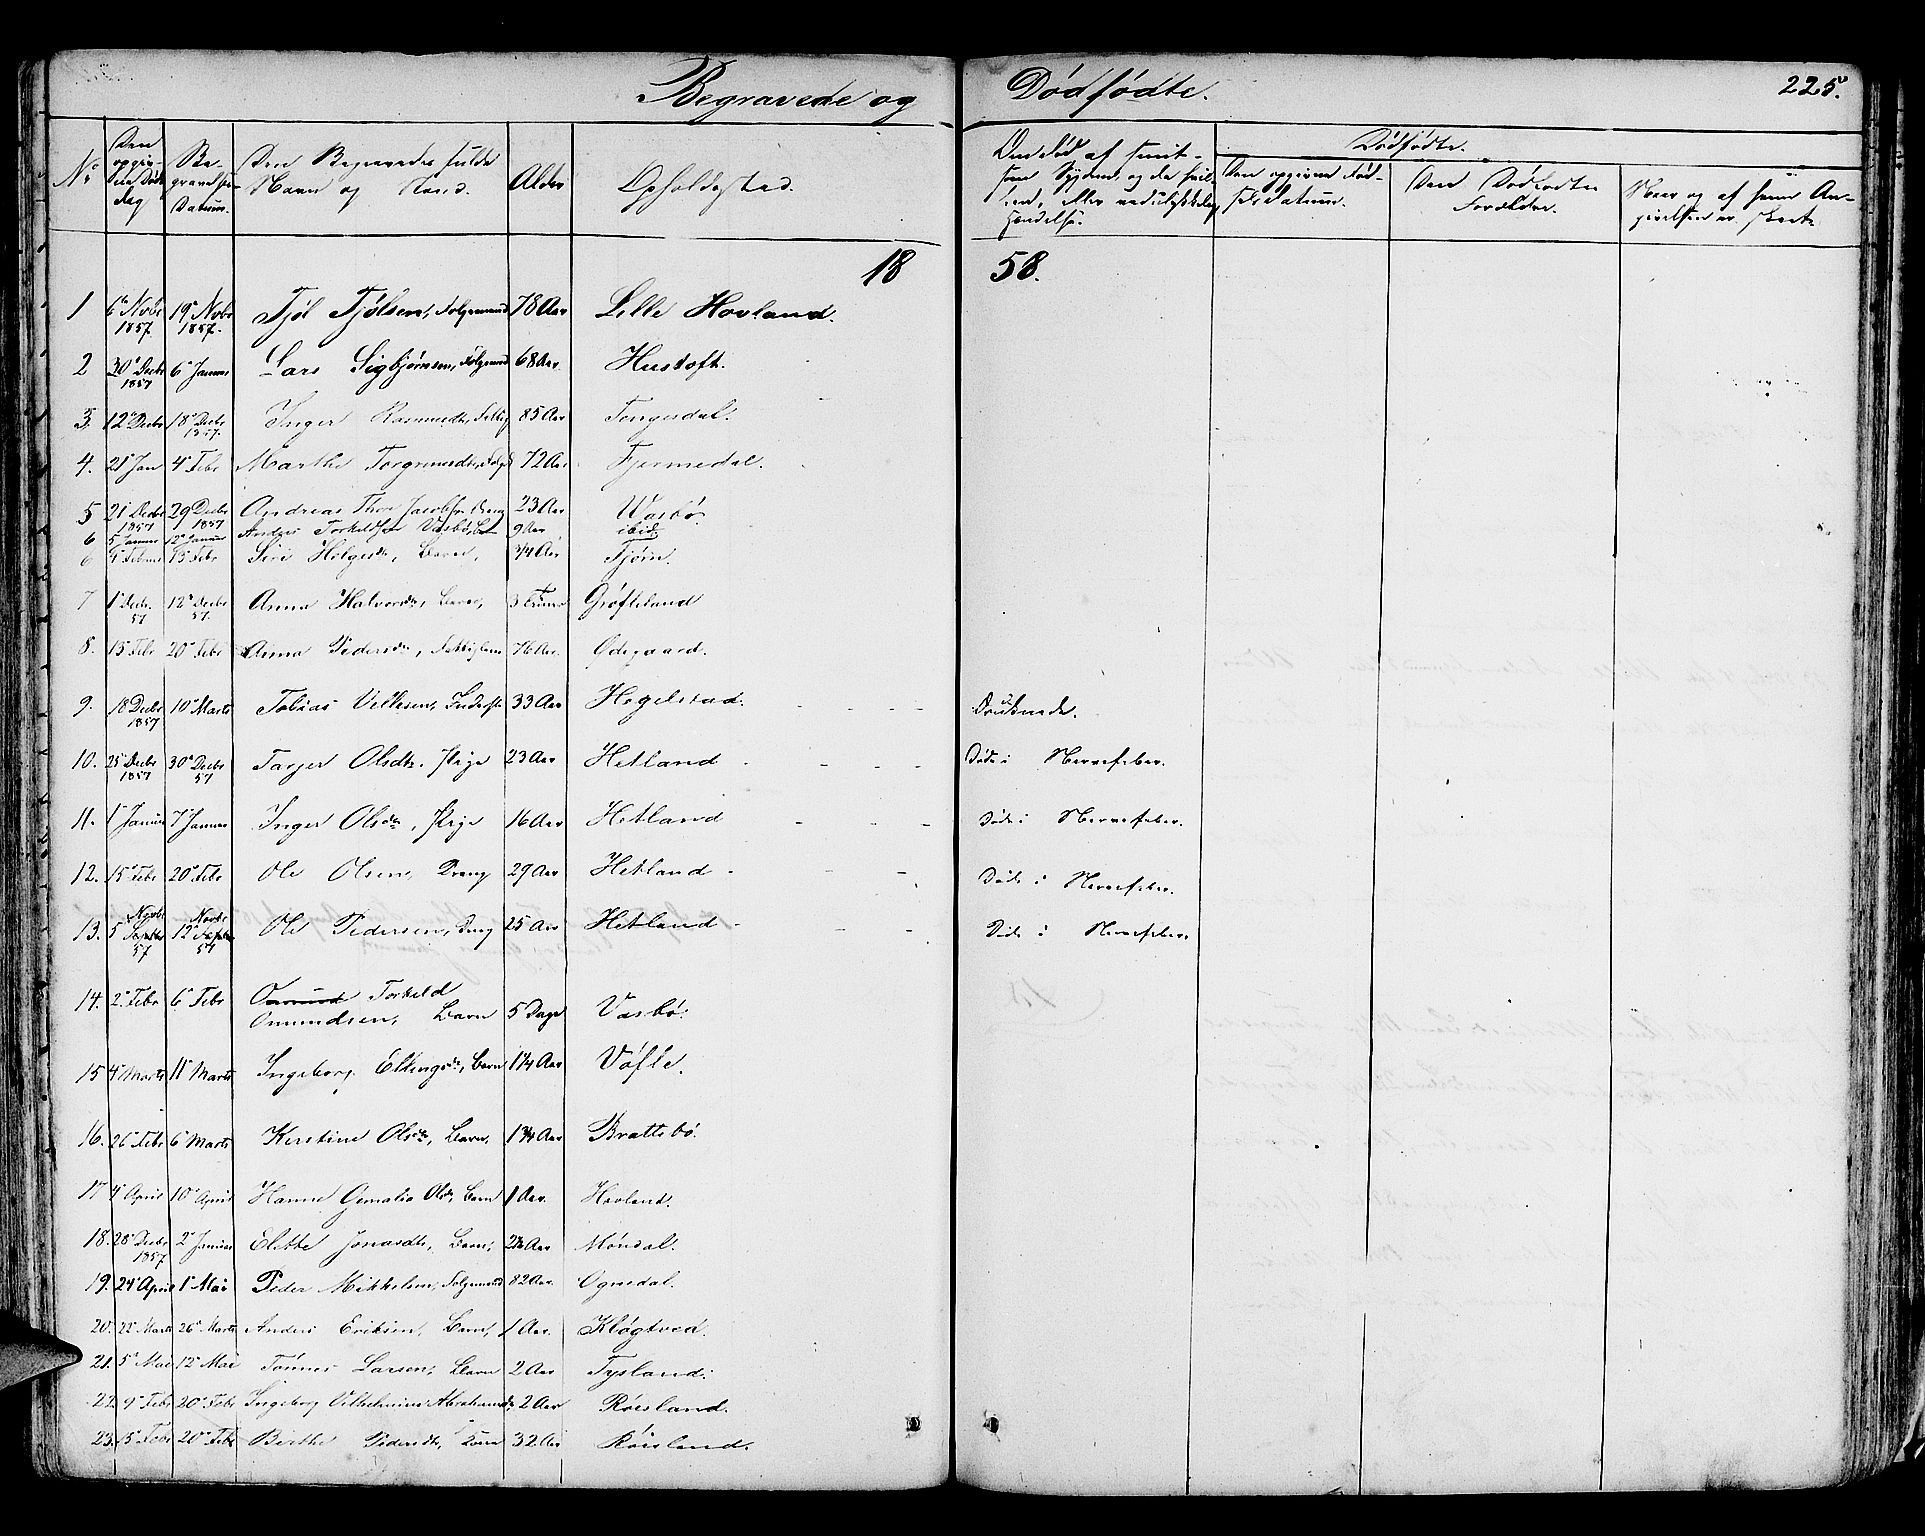 Begravede og Dødfødte. 225.
No. Den opgivne Døds dag Begravelses Datum. Den Begravedes fulde Navn og Stand. Alder Opholdssted. Om død af smitsom Sygdom, og da hvilken, eller ved ulykkelig Hændelse. Dødfødte.
Den opgivne Fødsels Datum. Den Dødfødtes Forældre. Naar og af hvem Angivelsen er skeet
1858.
1 6te Novbr 1857. 19de Novbr 1857. Tjøl Tjølsen, Folgemand 78 Aar Lille Hovland.
2 30 Decbr 1857 6 Januar Lars Sigbjørnsen, Folgemand 68 Aar. Hustoft.
3. 12 Decbr 18 Decbr 1857. Inger Rasmusdtr, 85 Aar Tengesdal.
4. 21 Jan 4 Febr Marthe Torgrimsdtr, 72 Aar Fjermedal.
5 21 Decbr 1857 29 Decbr 1857 Andreas Thor Jacobsen Dreng 23 Aar Vasbø
6 5 Januar 12 Januar Anders Torkeldsen Vasbø, 9 Aar ibid.
6 9 Februar 15 Febr Siri Helgesdtr, Barn, 3/4 Aar Tjørn.
7 1 Decbr. 57 12 Decbr 57. Anna Halvorsdtr, Barn, 3 Grøfteland
8. 15 Febr 20 Febr Anna Pedersdtr, Fattiglem 76 Aar. Ødegaard.
9. 18 Decbr 1857 10 Marts Tobias Vellesen, 33 Aar Hegelstad. Druknede.
10. 25 Decbr 1857 30 Decbr 57 Tarjer Olsdtr. Pige 23 Aar Hetland Døde i Nervefeber.
11. 1 Januar 7 Januar Inger Olsdtr, Pige 16 Aar Hetland Døde i Nervefeber.
12. 15 Febr 20 Febr Ole Olsen, Dreng 29 Aar Hetland Døde i Nervefeber.
13. 5 Novbr 57 12 Novbr 57 Ole Pedersen, Dreng 25 Aar Hetland Døde i Nervefeber.
14. 2 Febr 6 Febr Omund Torkeld
Omundsen, Barn 5 Dage Vasbø.
15 4 Marts 11 Marts Ingeborg Ellingsdtr, Barn 1 1/4 Aar Vøfle.
16. 26 Febr 6 Marts Kerstine Olsdtr, Barn, 1 3/4 Aar Brattebø.
17 4 April 10 April Hanne Gemalia Olsdtr, Barn 1 Aar. Hovland.
18. 28 Decbr 1857 2 Januar Elebbe Jonasdtr, Barn, 2 1/2 Aar Møndal.
19. 24 April 1 Mai Peder Mikkelsen, Folgemand 82 Aar. Ognedal.
20. 22 Marts 26 Marts Anders Eriksen, Barn, 1 Aar. Kløgtved.
21. 5 Mai 12 Mai Tønnes Larsen, Barn 2 Aar Tysland.
22. 9 Febr 20 Febr Ingeborg Vilhelmine Abrahamsdtr 2 Aar Røisland.
23. 15 Febr 20 Febr Berthe Pedersdtr, Kone 32 Aar Røisland.